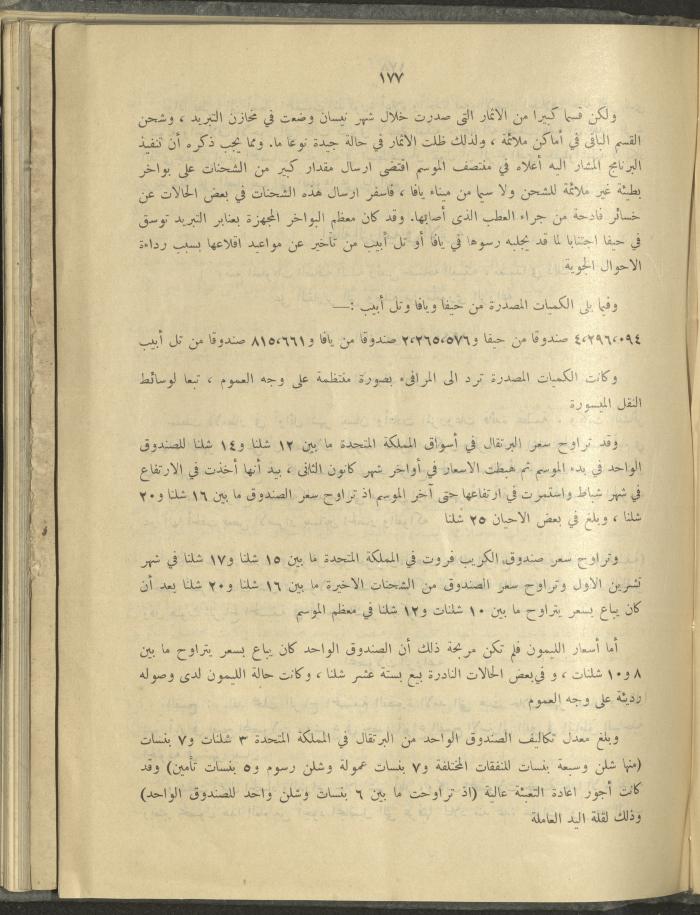 ١٧٧
ولكن قسما كبيرا من الاثمار التى صدرت خلال شهر نيسان وضعت في مخازن التبريد ، وشحن
القسم الباقي في أماكن ملائمة ، ولذلك ظلت الاثمار في حالة جيدة نوعا ما. ومما يجب ذكره أن تنفيذ
البرنامج المشار اليه أعلاه في منتصف الموسم اقتضى ارسال مقدار كبير من الشحنات على بواخر
بطيئة غير ملائمة للشحن ولا سيما من ميناء يافا ، فاسفر ارسال هذه الشحنات في بعض الحالات عن
خسائر فادحة من جراء العطب الذى أصابها. وقد كان معظم البواخر المجهزة بعنابر التبريد توسق
في حيفا اجتنابا لما قد يجلبه رسوها في يافا أو تل أبيب من تأخير عن مواعيد اقلاعها بسبب رداءة
الاحوال الجوية
وفيما يلى الكميات المصدرة من حيفا ويافا وتل أبيب :—
٤،٢٩٦،٠٩٤ صندوقا من حيفا و٢،٢٦٥،٥٧٦ صندوقا من يافا و٨١٥،٦٦١ صندوقا من تل أبيب
وكانت الكميات المصدرة ترد الى المرافىء بصورة منتظمة على وجه العموم ، تبعا لوسائط
النقل الميسورة
وقد تراوح سعر البرتقال في أسواق المملكة المتحدة ما بين ١٢ شلنا و١٤ شلنا للصندوق
الواحد في بدء الموسم ثم هبطت الاسعار في أواخر شهر كانون الثانى ، بيد أنها أخذت في الارتفاع
في شهر شباط واستمرت في ارتفاعها حتى آخر الموسم اذ تراوح سعر الصندوق ما بين ١٦ شلنا و٢٠
شلنا ، وبلغ في بعض الاحيان ٢٥ شلنا
وتراوح سعر صندوق الكريب فروت في المملكة المتحدة ما بين ١٥ شلنا و١٧ شلنا في شهر
تشرين الاول وتراوح سعر الصندوق من الشحنات الاخيرة ما بين ١٦ شلنا و٢٠ شلنا بعد أن
كان يباع بسعر يتراوح ما بين ١٠ شلنات و١٢ شلنا في معظم الموسم
أما أسعار الليمون فلم تكن مربحة ذلك أن الصندوق الواحد كان يباع بسعر يتراوح ما بين
٨ و١٠ شلنات ، و في بعض الحالات النادرة بيع بستة عشر شلنا ، وكانت حالة الليمون لدى وصوله
رديئة على وجه العموم
وبلغ معدل تكاليف الصندوق الواحد من البرتقال في المملكة المتحدة ٣ شلنات و٧ بنسات
(منها شلن وسبعة بنسات للنفقات المختلفة و٧ بنسات عمولة وشلن رسوم و٥ بنسات تأمين) وقد
كانت أجور اعادة التعبئة عالية (اذ تراوحت ما بين ٦ بنسات وشلن واحد للصندوق الواحد)
وذلك لقلة اليد العاملة